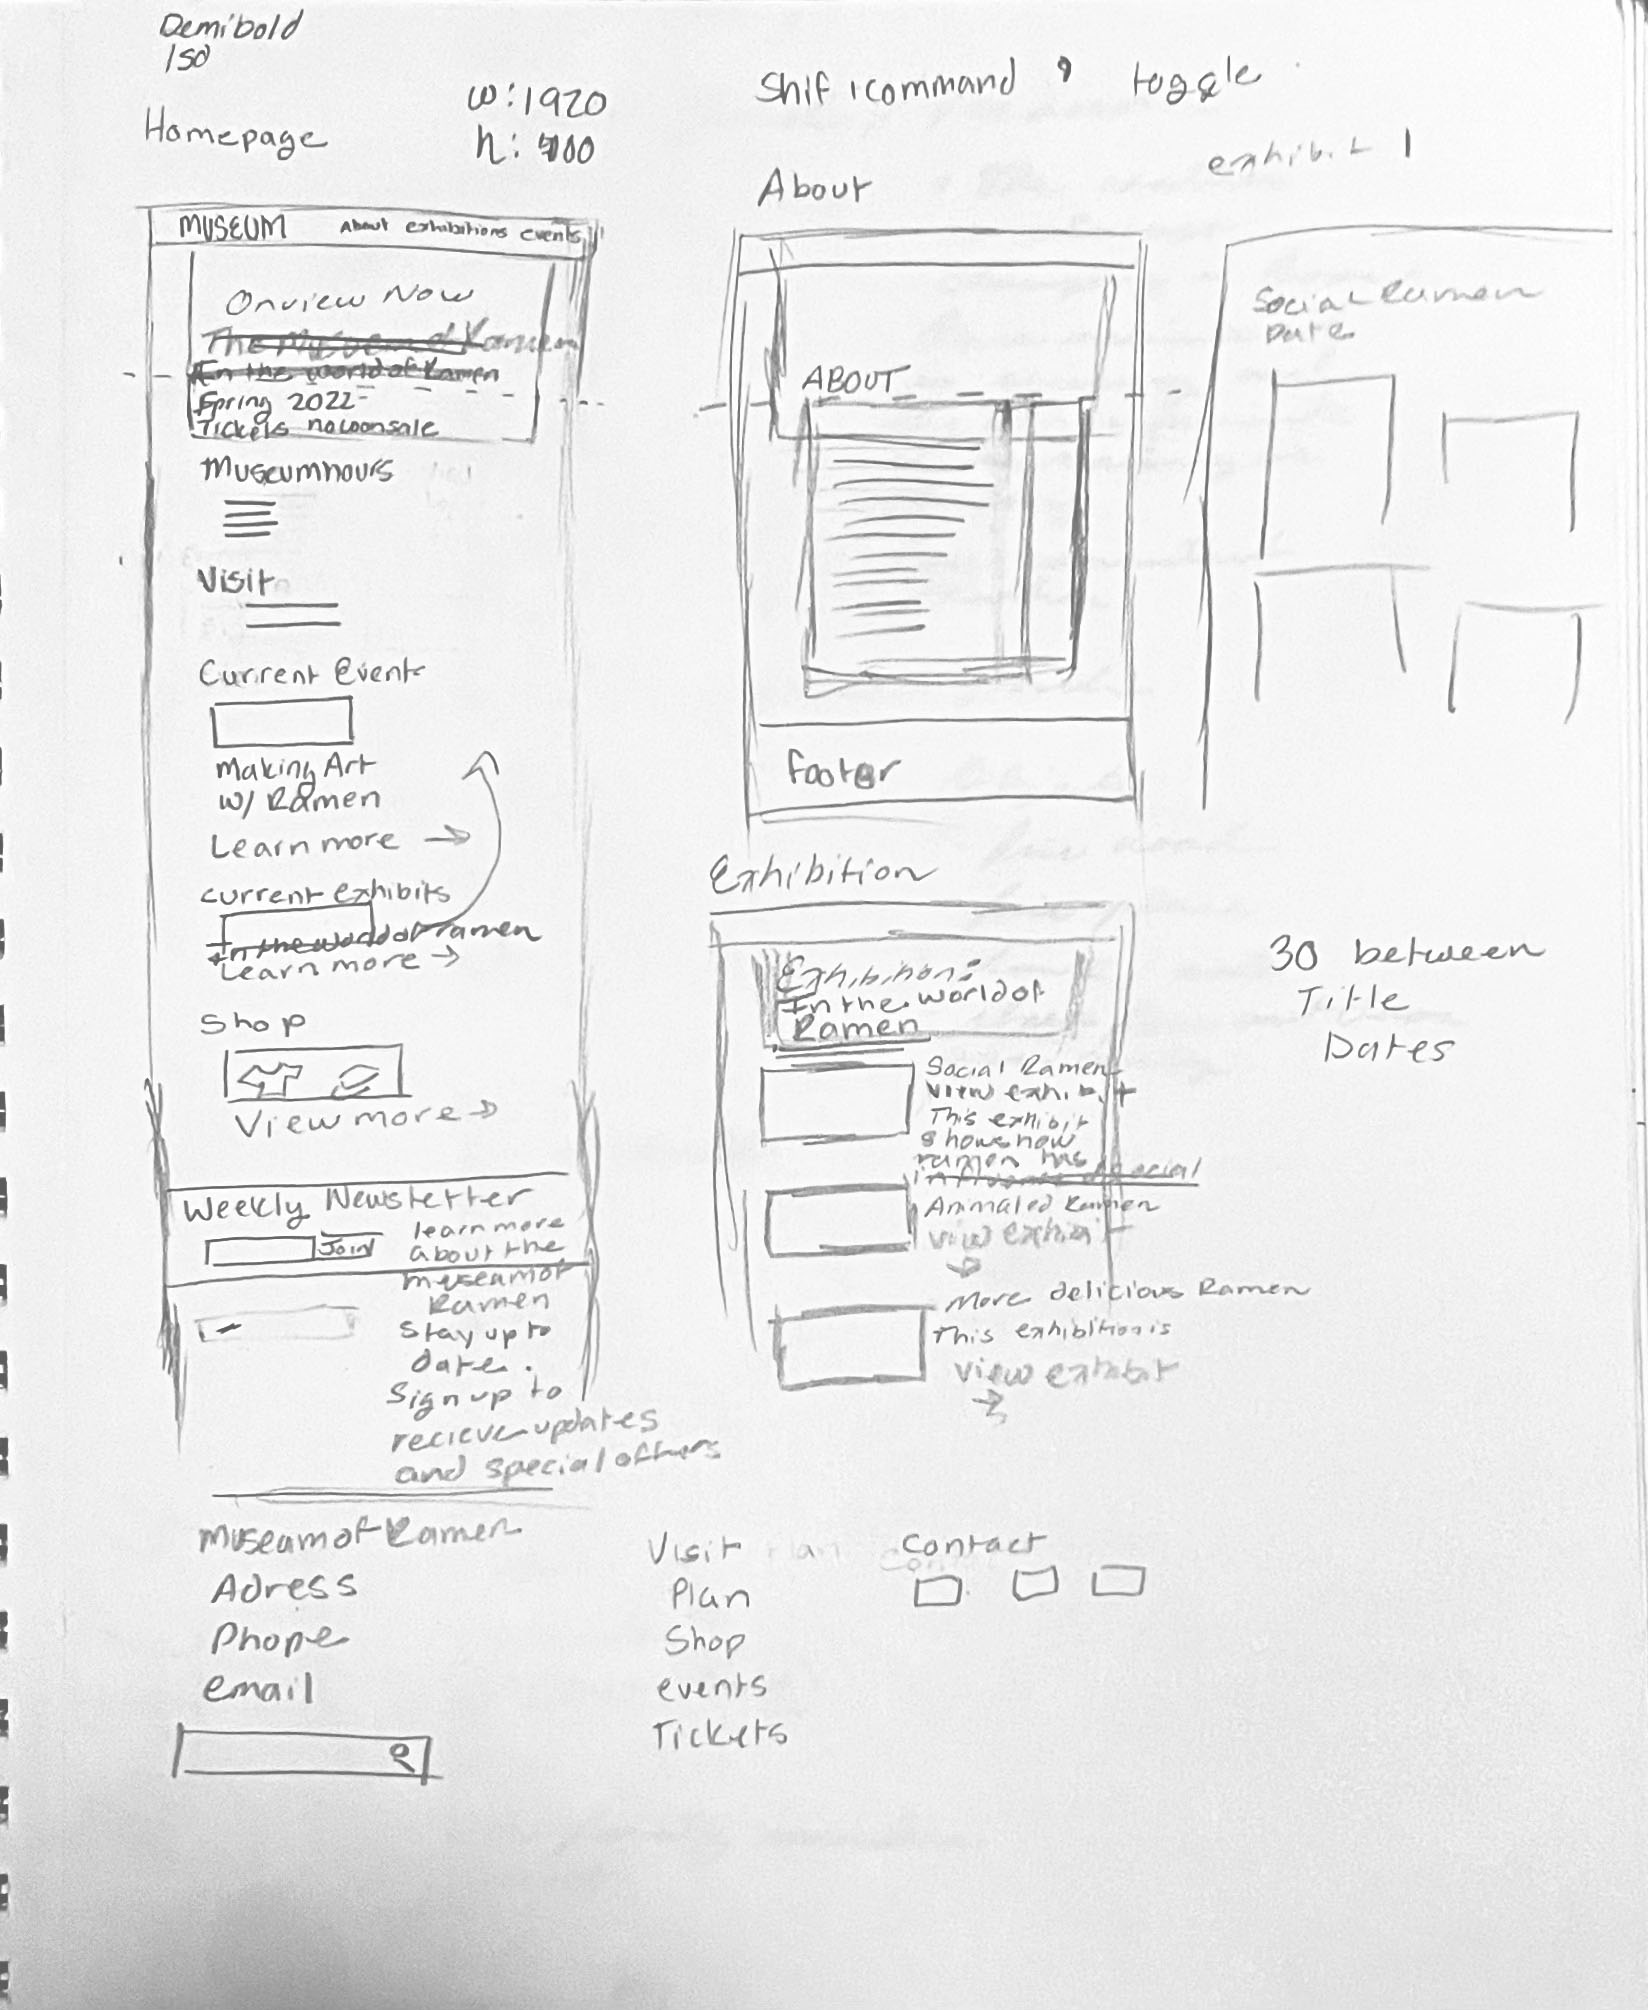 Demibold
150
Homepage
w: 1920
h: 900
Shif + command , toggle
MUSEUM About exhibitions events
On view Now
The Museum of Ramen
In the world of Ramen
Spring 2022
Tickets now on sale
Museum hours
Visit
Current Event
Making Art
w/ Ramen
Learn more →
current exhibits
In the world of ramen
Learn more →
Shop
View more →
Weekly Newsletter
Join
learn more
about the
museam of
Ramen
Stay up to
date.
Sign up to
recieve updates
and special offers
Museam of Ramen
Adress
Phone
email
Visit
Plan
Shop
events
Tickets
Contact
About
ABOUT
footer
exhibit 1
Social Ramen
Date
Exhibition
Exhibition:
In the world of
Ramen
Social Ramen
view exhibit
This exhibit
shows how
ramen has
social
Animated Ramen
view exhibit
→
More delicious Ramen
This exhibition is
view exhibit
→
30 between
Title
Dates